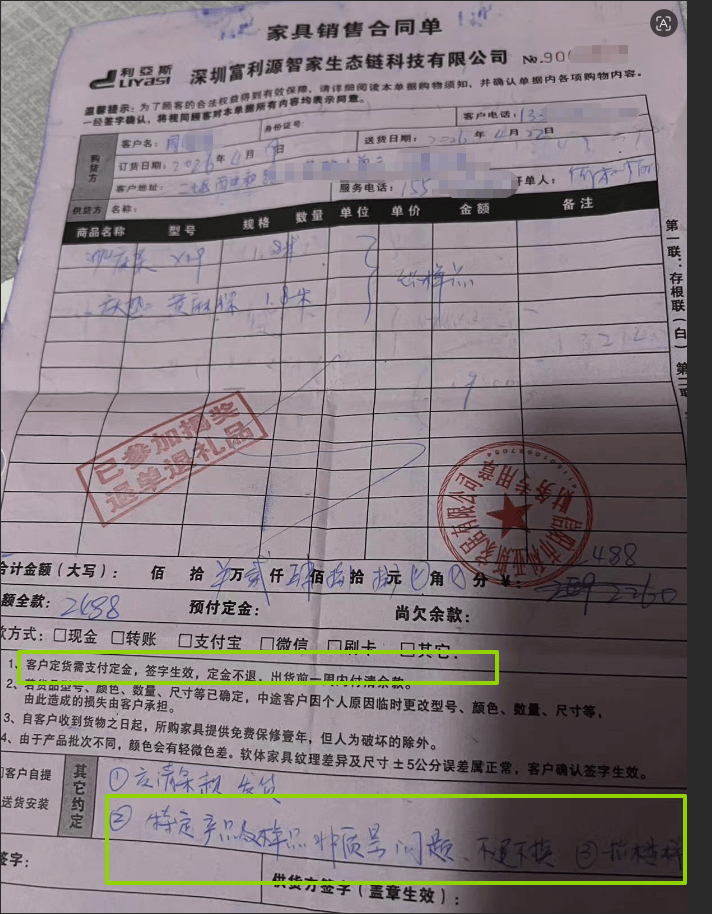 家具销售合同单
利亞斯
LIYASI
深圳富利源智家生态链科技有限公司
№.90
温馨提示：为了顾客的合法权益得到有效保障，请详细阅读本单据购物须知，并确认单据内各项购物内容。
一经签字确认，将视同顾客对本单据所有内容均表示同意。
购货方
客户名：
身份证号：
客户电话：13
订货日期：2026年4月 日
送货日期：2026年4月22日
客户地址：
服务电话：155
开单人：
供货方 名称：
商品名称 型号 规格 数量 单位 单价 金额 备注
1.8米
床垫 黄麻保 1.8米
第一联：存根联（白）
第二
已参加摘奖
退单退礼品
家居有限公司
财务专用章
2488
合计金额（大写）： 佰 拾 万 贰 仟 肆 佰 捌 拾 捌 元 角 分 ¥：
额全款：2488 预付定金： 尚欠余款：
款方式：□现金 □转账 □支付宝 □微信 □刷卡 □其它：
1、客户定货需支付定金，签字生效，定金不退，出货前一周内付清余款。
2、若货品型号、颜色、数量、尺寸等已确定，中途客户因个人原因临时更改型号、颜色、数量、尺寸等，
由此造成的损失由客户承担。
3、自客户收到货物之日起，所购家具提供免费保修壹年，但人为破坏的除外。
4、由于产品批次不同，颜色会有轻微色差。软体家具纹理差异及尺寸±5公分误差属正常，客户确认签字生效。
客户自提
送货安装
其它约定
①交清余款发货
②特定产品及样品非质量问题、不退不换 ③
签字：
供货方签字（盖章生效）：